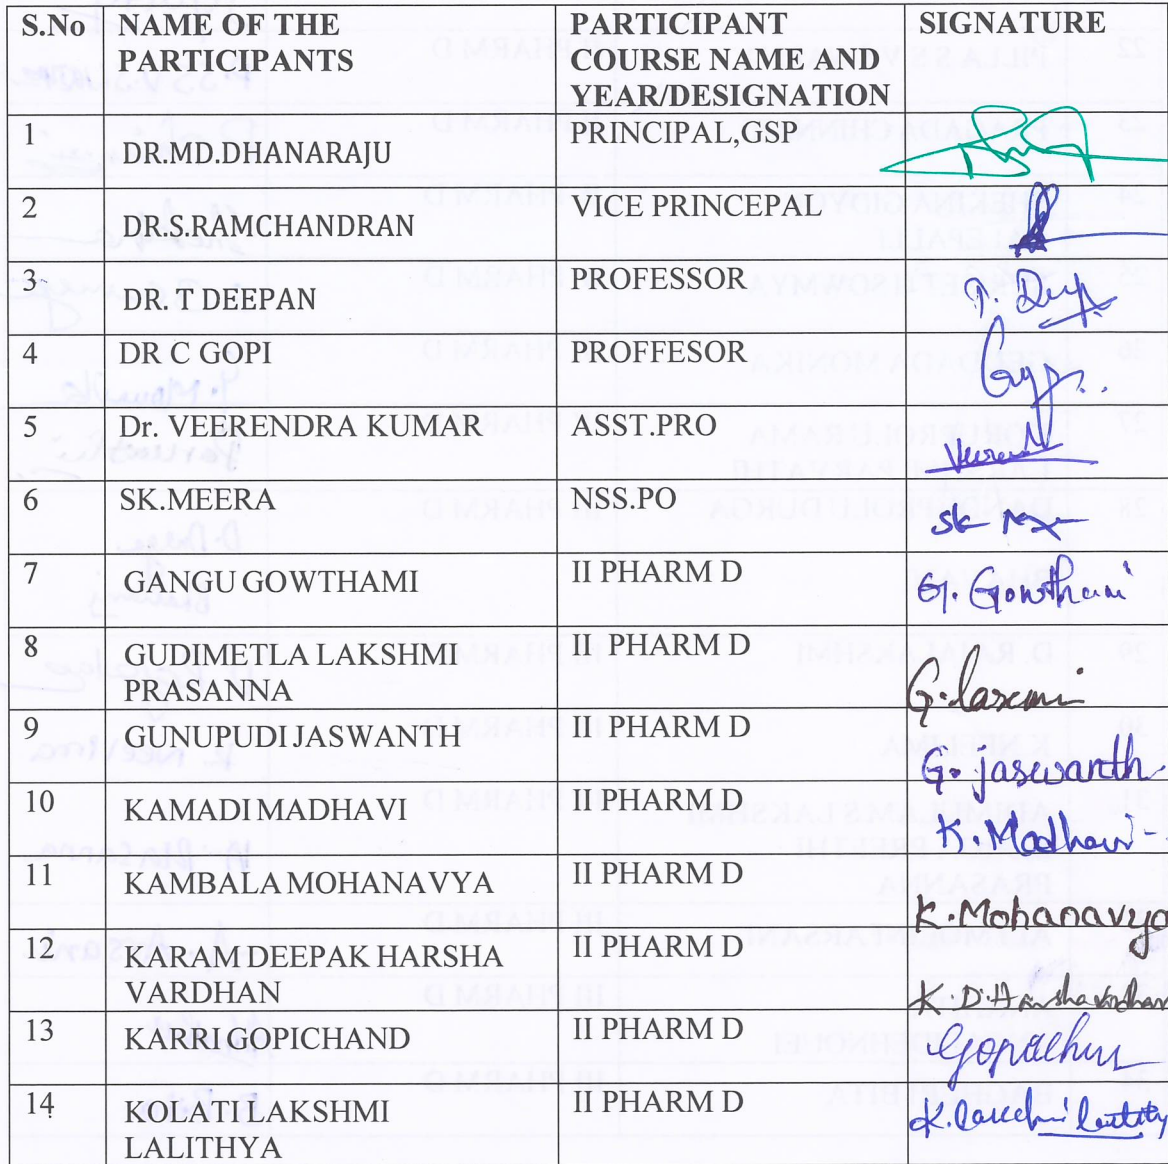 S.No NAME OF THE PARTICIPANTS PARTICIPANT COURSE NAME AND YEAR/DESIGNATION SIGNATURE
1 DR.MD.DHANARAJU PRINCIPAL,GSP
2 DR.S.RAMCHANDRAN VICE PRINCEPAL
3 DR. T DEEPAN PROFESSOR
4 DR C GOPI PROFFESOR
5 Dr. VEERENDRA KUMAR ASST.PRO
6 SK.MEERA NSS.PO
7 GANGU GOWTHAMI II PHARM D G. Gowthami
8 GUDIMETLA LAKSHMI PRASANNA II PHARM D G. laxmi
9 GUNUPUDI JASWANTH II PHARM D G. jaswanth
10 KAMADI MADHAVI II PHARM D K. Madhavi
11 KAMBALA MOHANAVYA II PHARM D K. Mohanavya
12 KARAM DEEPAK HARSHA VARDHAN II PHARM D K. D. Harshavardhan
13 KARRI GOPICHAND II PHARM D Gopichand
14 KOLATI LAKSHMI LALITHYA II PHARM D